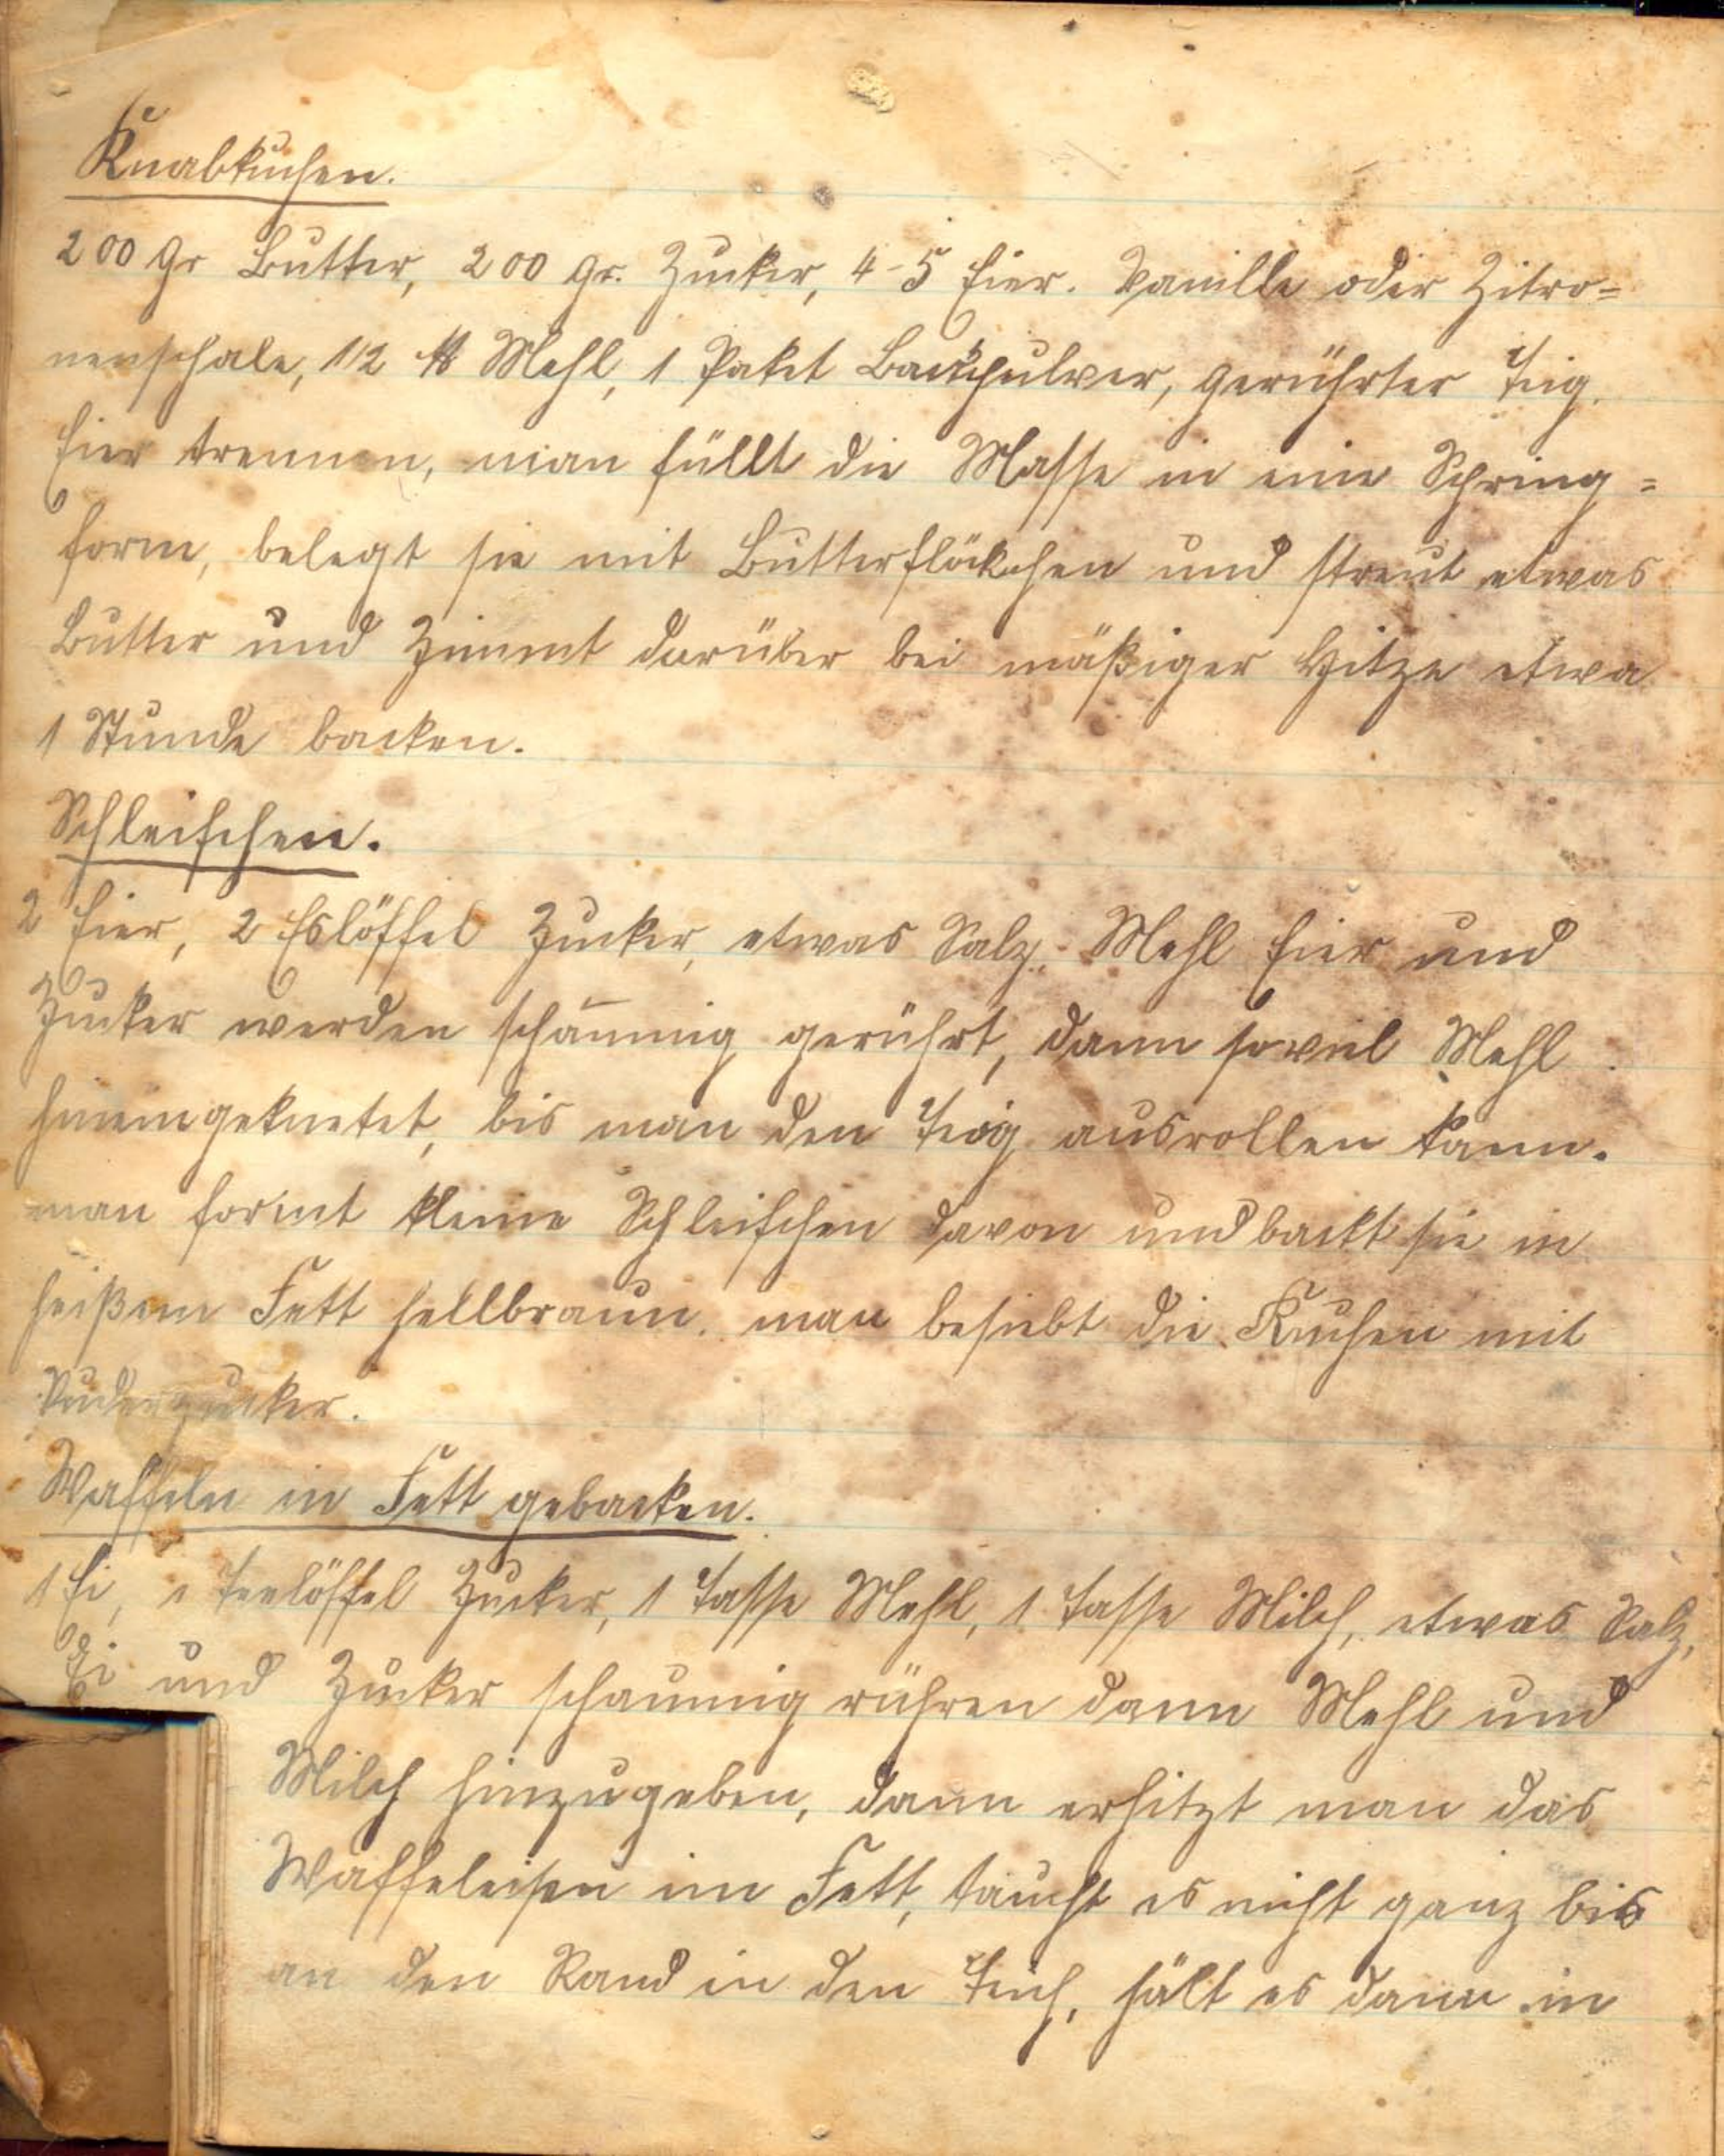 Knabkuchen.
200 gr Butter, 200 gr. Zucker, 4-5 Eier. Vanille oder Zitro=
nenschale, 1/2 ℔ Mehl, 1 Paket Backpulver, gerührter Teig.
Eier trennen, man füllt die Masse in eine Spring=
form, belegt sie mit Butterflöckchen und streut etwas
Butter und Zimmt darüber bei mäßiger Hitze etwa
1 Stunde backen.
Schleifchen.
2 Eier, 2 Eslöffel Zucker, etwas Salz. Mehl Eier und
Zucker werden schäumig gerührt, dann soviel Mehl
hineingeknetet, bis man den Teig ausrollen kann.
man formt kleine Schleifchen davon und backt sie in
heißem Fett hellbraun. man besiebt die Kuchen mit
Puderzucker.
Waffeln in Fett gebacken.
1 Ei, 1 Teelöffel Zucker, 1 Tasse Mehl, 1 Tasse Milch, etwas Salz,
Ei und Zucker schaumig rühren dann Mehl und
Milch hinzugeben, dann erhitzt man das
Waffeleisen im Fett, taucht es nicht ganz bis
an den Rand in den Teich, hält es dann in